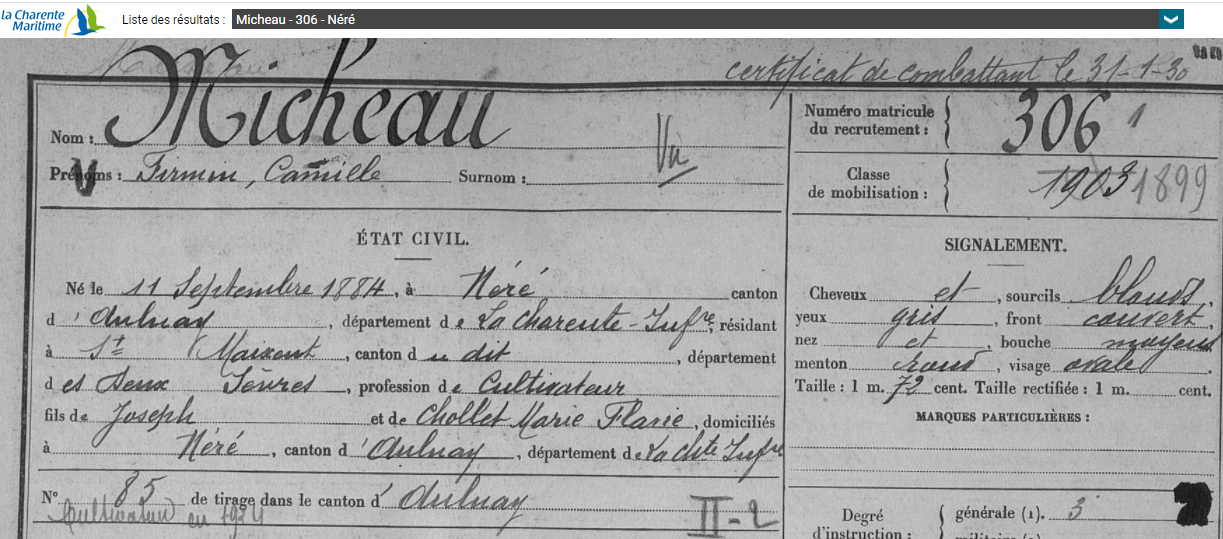 la Charente
Maritime
Liste des résultats :
Micheau - 306 - Néré
certificat de combattant le 31-1-30
Nom : Micheau
Vu
Prénoms : Firmin, Camille Surnom :
Numéro matricule
du recrutement : 306
Classe
de mobilisation : 1903 1899
ÉTAT CIVIL.
Né le 11 Septembre 1884, à Néré canton
d'Aulnay, département de La Charente-Infre, résidant
à St Maixent, canton du dit, département
des Deux Sèvres, profession de Cultivateur
fils de Joseph et de Chollet Marie Flavie, domiciliés
à Néré, canton d'Aulnay, département de La Chte Infre
N° 85 de tirage dans le canton d'Aulnay
Cultivateur en 1924
II-2
SIGNALEMENT.
Cheveux et, sourcils blonds,
yeux gris, front couvert,
nez et, bouche moyens
menton rond, visage ovale.
Taille : 1 m. 72 cent. Taille rectifiée : 1 m. cent.
MARQUES PARTICULIÈRES :
Degré
d'instruction :
générale (1). 3
militaire (2)